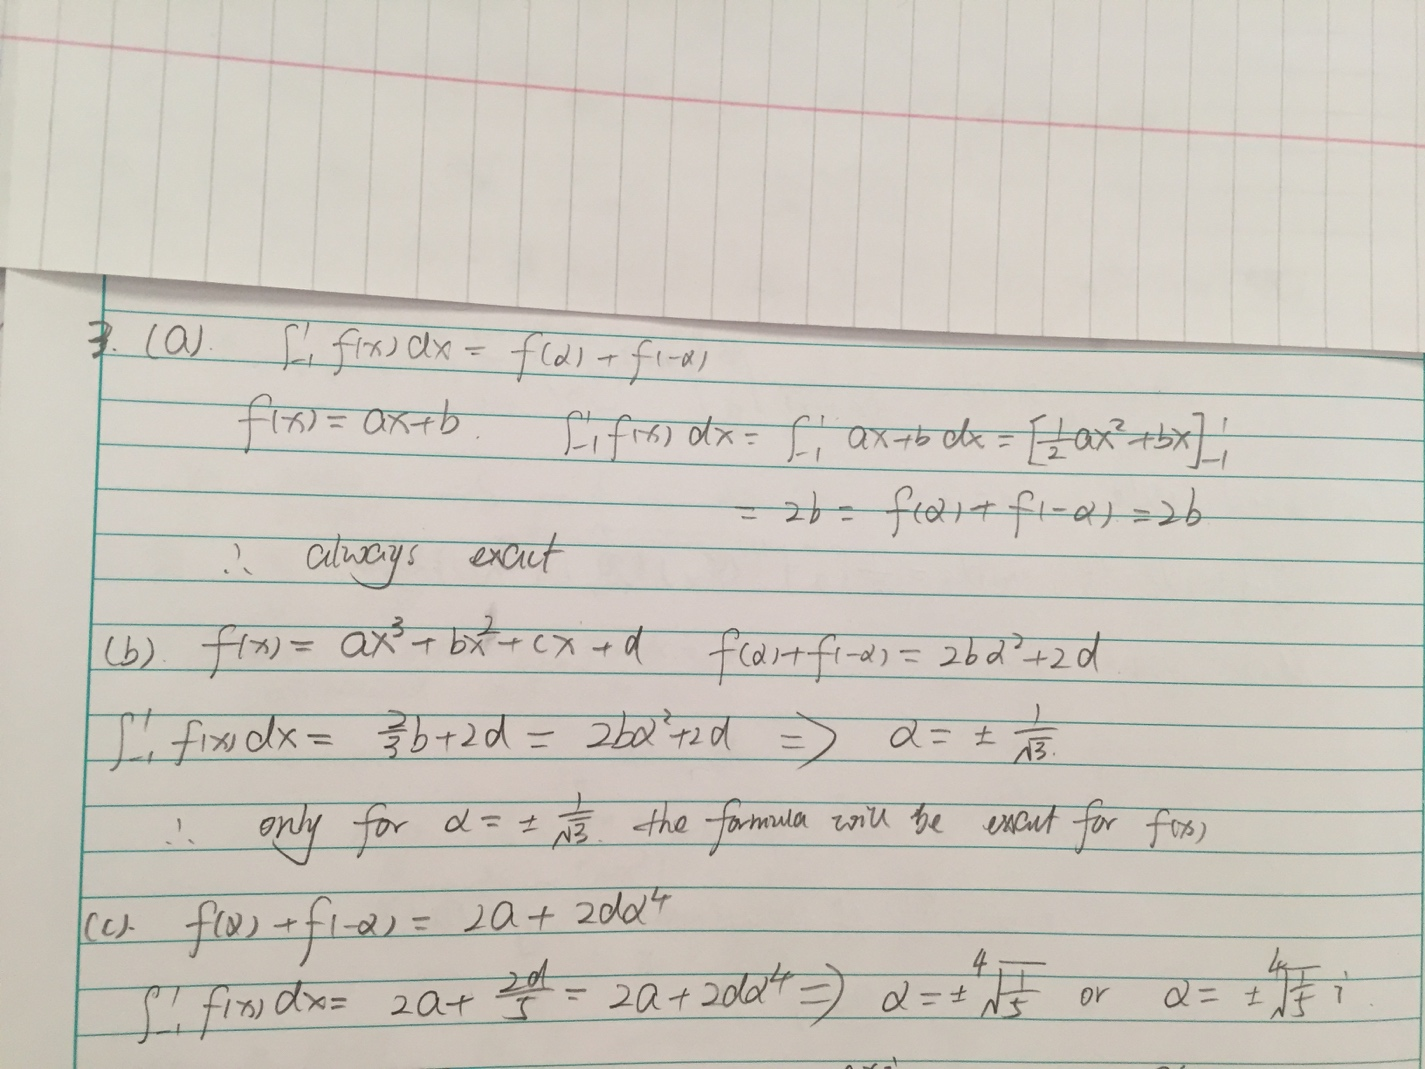 3. (a). ∫₋₁¹ f(x) dx = f(α) + f(-α)
f(x) = ax+b. ∫₋₁¹ f(x) dx = ∫₋₁¹ ax+b dx = [½ax²+bx]₋₁¹
= 2b = f(α) + f(-α) = 2b
∴ always exact
(b). f(x) = ax³ + bx² + cx + d f(α)+f(-α) = 2bα²+2d
∫₋₁¹ f(x) dx = ⅔b+2d = 2bα²+2d ⇒ α = ± 1/√3.
∴ only for α = ± 1/√3. the formula will be exact for f(x)
(c). f(α) + f(-α) = 2a + 2dα⁴
∫₋₁¹ f(x) dx = 2a + 2d/5 = 2a + 2dα⁴ ⇒ α = ± ⁴√(1/5) or α = ± ⁴√(1/5) i